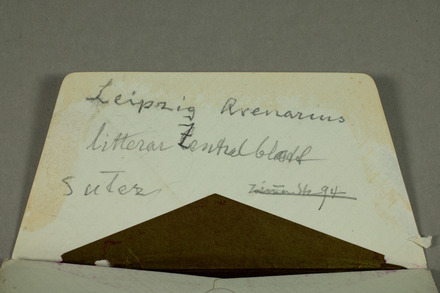 Leipzig Avenarius
litterar Zentralblatt
Suter 94